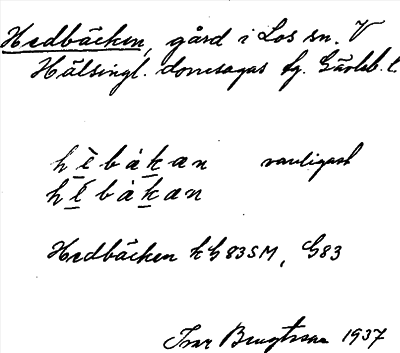 Hedbäcken, gård i Los sn. V
Hälsingl. domsagas fg. Gävleb. l.
hèbàkan vanligast
hébàkan
Hedbäcken hG83SM, G83
Ivar Bengtsson 1937